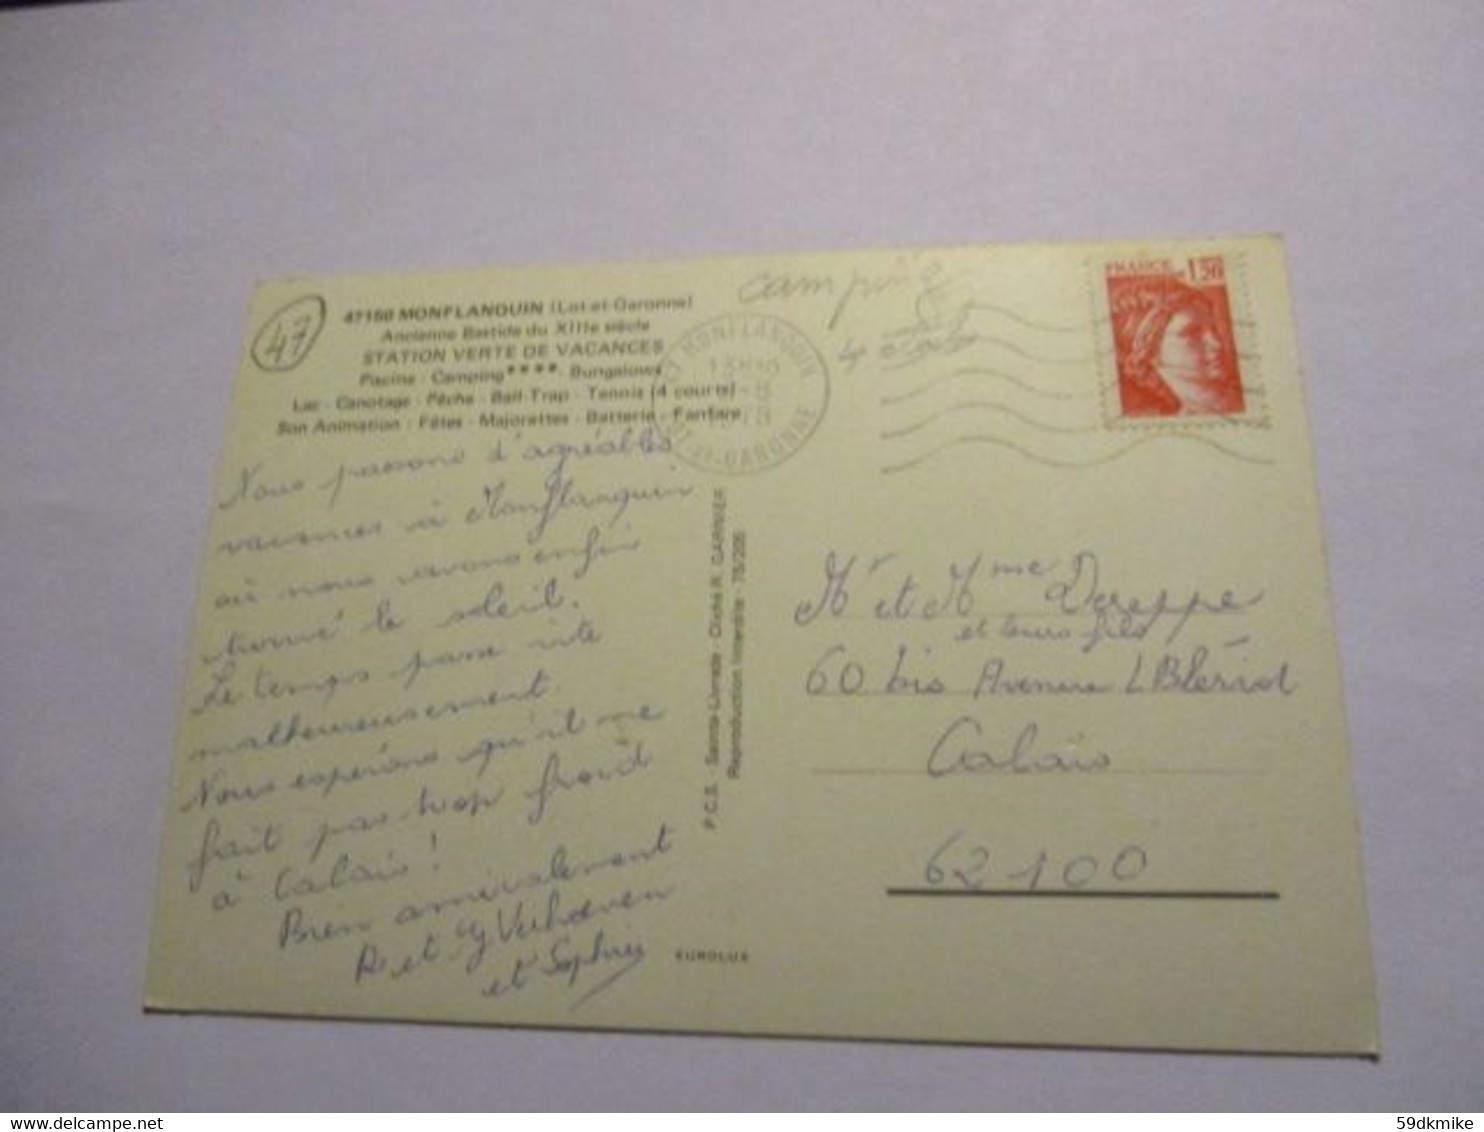 47
47150 MONFLANQUIN (Lot-et-Garonne)
Ancienne Bastide du XIIIe siècle
STATION VERTE DE VACANCES
Piscine - Camping **** - Bungalows
Lac - Canotage - Pêche - Ball-Trap - Tennis (4 courts)
Son Animation : Fêtes - Majorettes - Batterie - Fanfare
camping
4
47 MONFLANQUIN
LOT-ET-GARONNE
FRANCE 1,20
Nous passons d'agréables
vacances à Monflanquin
où nous avons enfin
trouvé le soleil.
Le temps passe vite
malheureusement
Nous espérons qu'il ne
fait pas trop froid
à Calais !
Bien amicalement
et Verhoeven
et Sophie
P.C.S. - Sainte-Livrade - Cliché R. GARNIER
Reproduction Interdite - 75/205
EUROLUX
Mr et Mme Dereppe
et leurs fils
60 bis Avenue L Blériot
Calais
62100
59dkmike